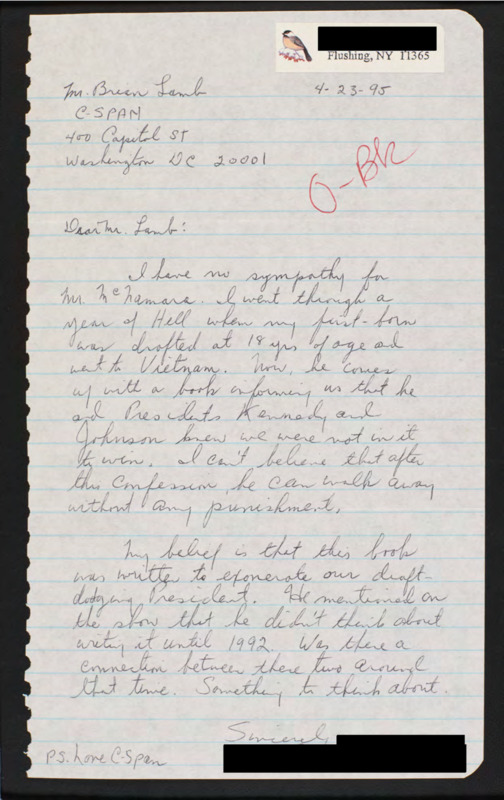 Flushing, NY 11365
Mr. Brian Lamb
4-23-95
C-SPAN
400 Capitol ST
Washington DC 20001
O-Bk
Dear Mr. Lamb:
I have no sympathy for
Mr. McNamara. I went through a
year of Hell when my first-born
was drafted at 18 yrs of age ad
went to Vietnam. Now, he comes
up with a book informing us that he
ad Presidents Kennedy and
Johnson knew we were not in it
to win. I can't believe that after
this confession, he can walk away
without any punishment.
My belief is that this book
was written to exonerate our draft-
dodging President. He mentioned on
the show that he didn't think about
writing it until 1992. Was there a
connection between these two around
that time. Something to think about.
Sincerely
PS. Love C-Span